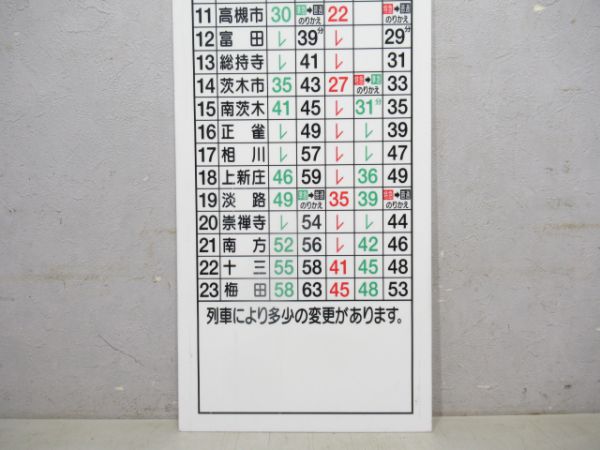 11 高槻市 30 のりかえ 22 のりかえ
12 富田 レ 39分 レ 29分
13 総持寺 レ 41 レ 31
14 茨木市 35 43 27 のりかえ 33
15 南茨木 41 45 レ 31分 35
16 正雀 レ 49 レ レ 39
17 相川 レ 57 レ レ 47
18 上新庄 46 59 レ 36 49
19 淡路 49 のりかえ 35 39 のりかえ
20 崇禅寺 レ 54 レ レ 44
21 南方 52 56 レ 42 46
22 十三 55 58 41 45 48
23 梅田 58 63 45 48 53
列車により多少の変更があります。